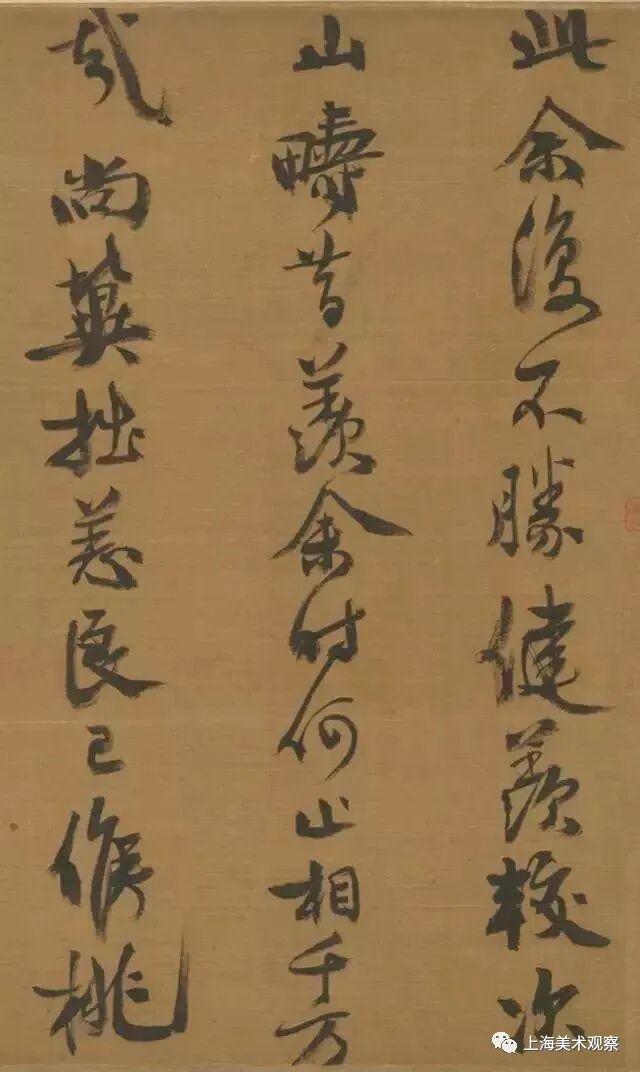 此余復不勝健羨較次
山疇昔羨余时何止相千万
哉尚冀拙恙良已候桃
上海美术观察